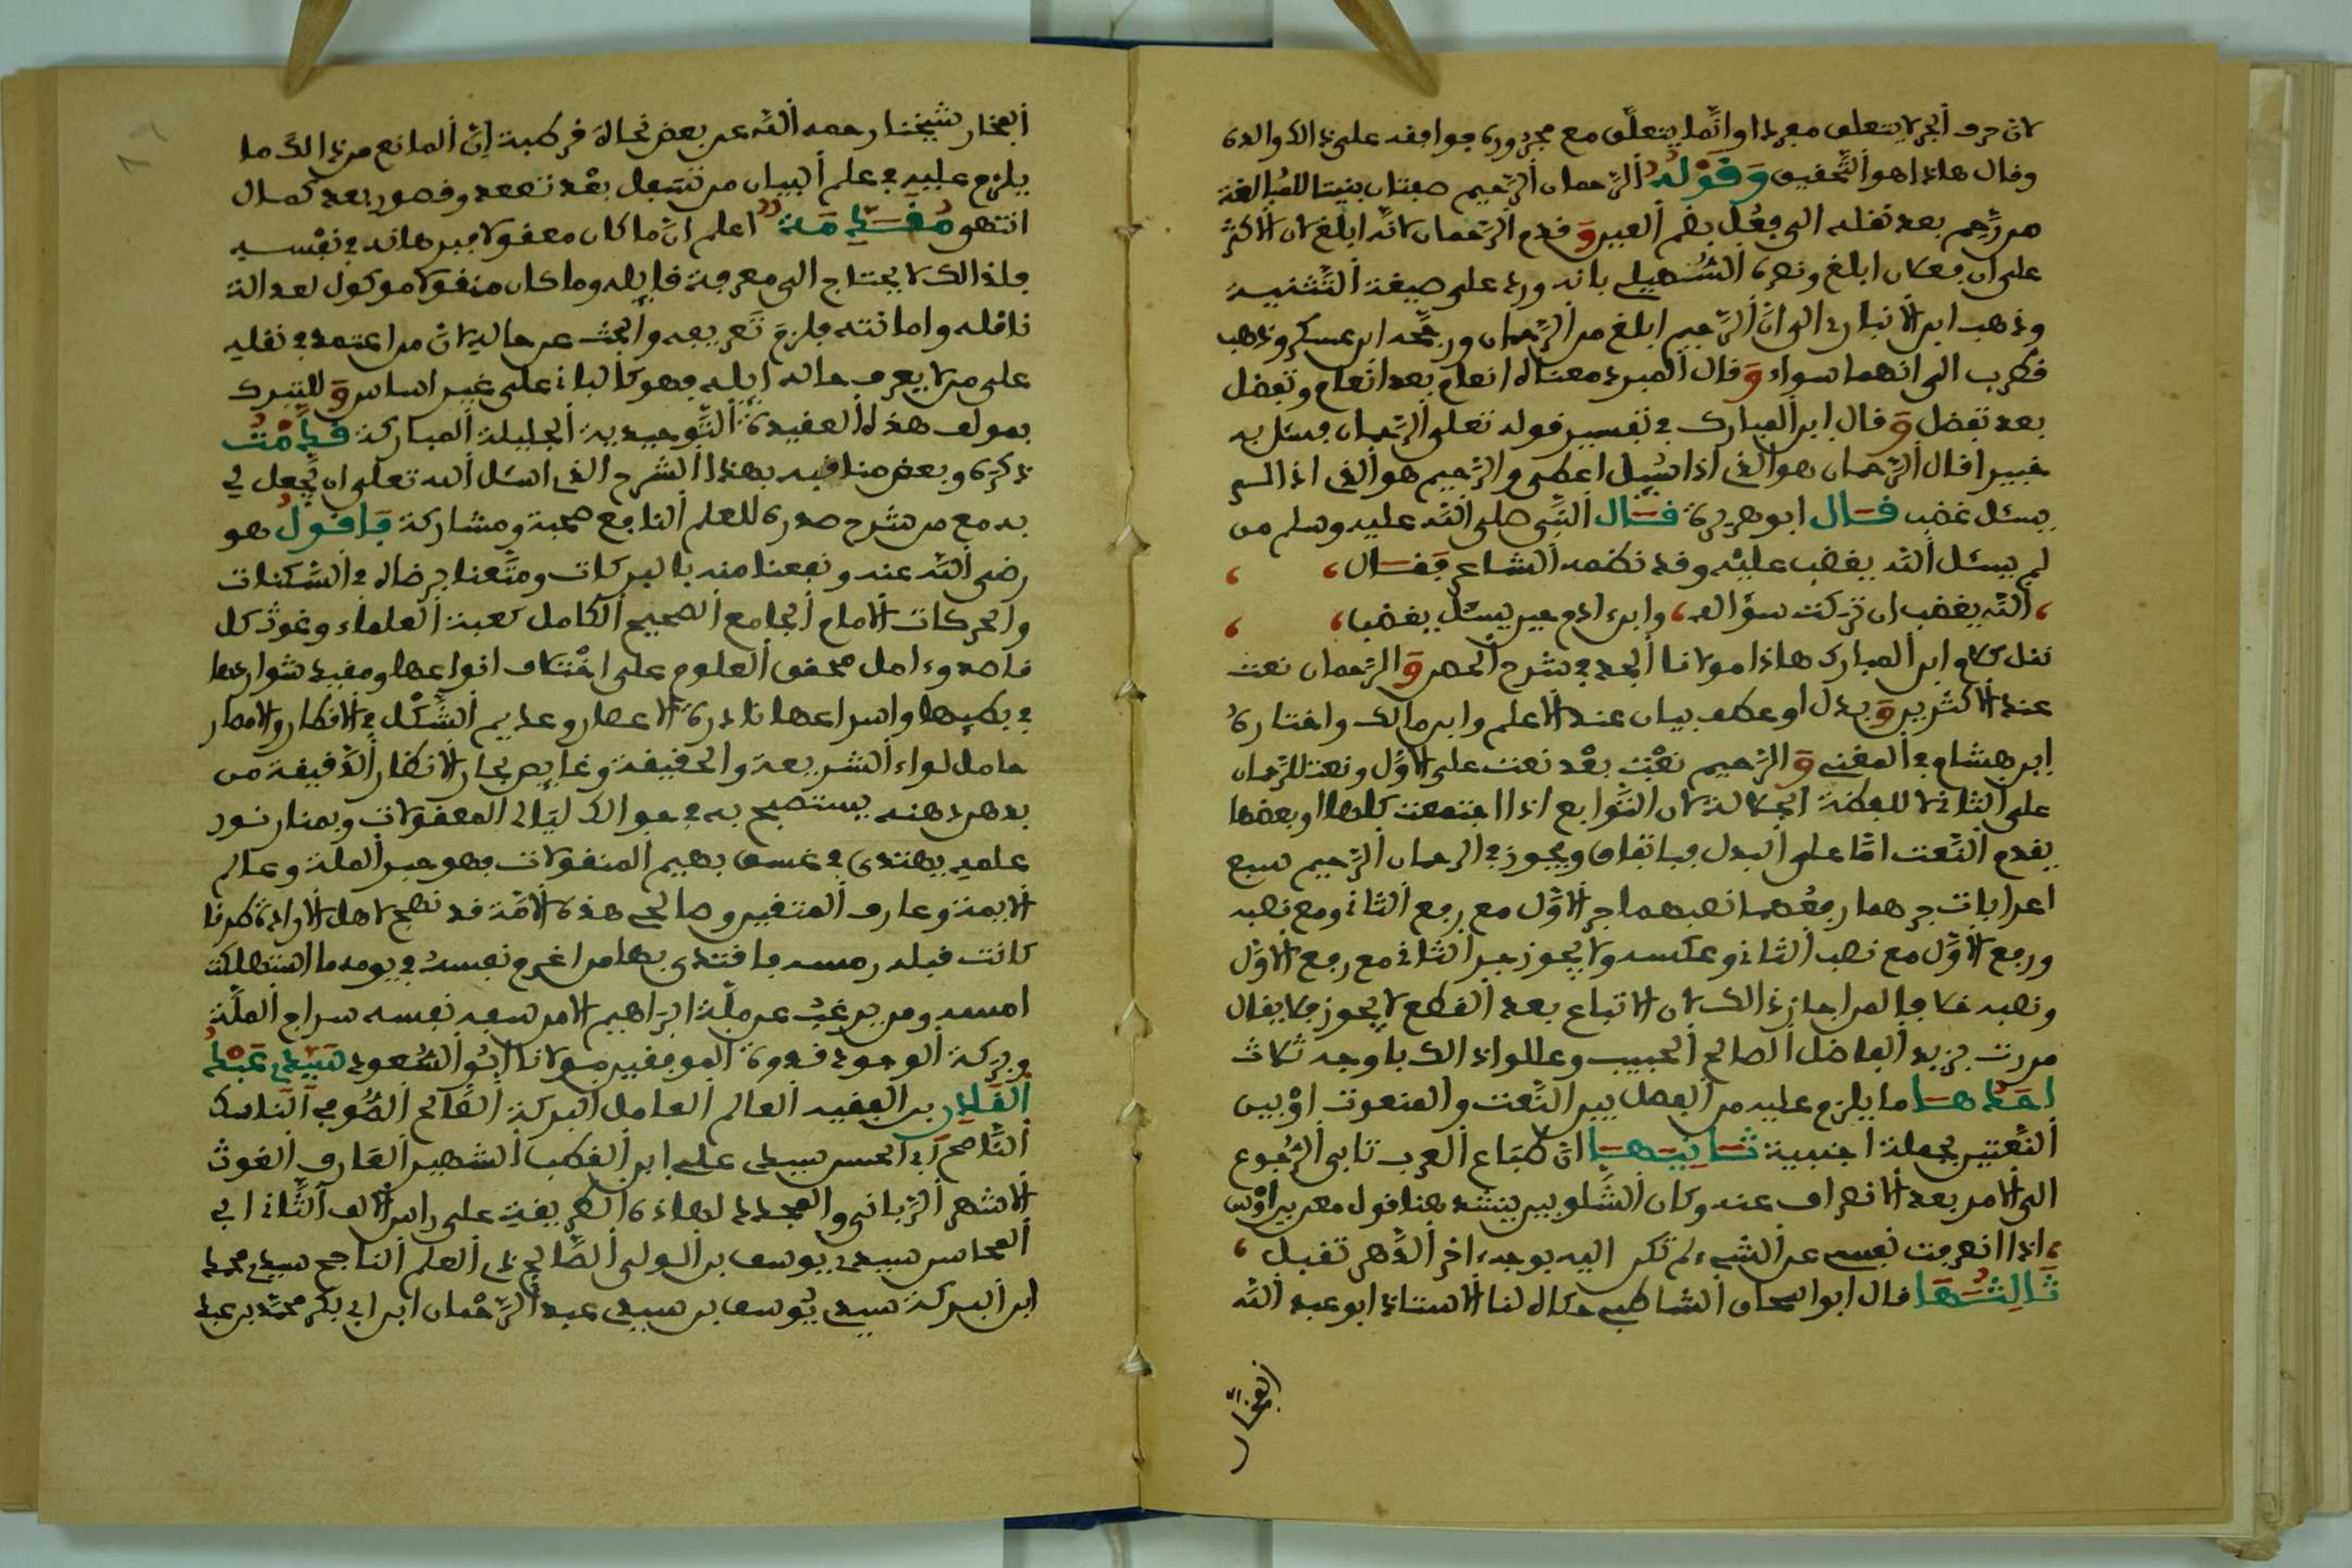 لان حرف الجر لا يتعلق مفردا وانما يتعلق مع مجروره فوافقه على ذالك والده
وقال هاذا هو التحقيق وقوله الرحمان الرحيم صفتان بنيتا للمبالغة
من رحم بعد نقله الى فعل بضم العين وقدم الرحمان لانه ابلغ لان الاكثر
على ان فعلان ابلغ ونصره السهيلي بانه ورد على صيغة التثنية
وذهب ابن الانباري الى ان الرحيم ابلغ من الرحمان ورجحه ابن عسكر وذهب
قطرب الى انهما سواء وقال المبرد معناه انعام بعد انعام وتفضل
بعد تفضل وقال ابن المبارك في تفسير قوله تعلى الرحمان فسئل به
خبيرا قال الرحمان هو الذي اذا سيل اعطى والرحيم هو الذي اذا لم
يسئل غضب قال ابو هريرة قال النبي صلى الله عليه وسلم من
لم يسئل الله يغضب عليه وقد نظمه الشاعر فقال
الله يغضب ان تركت سؤاله ، وابن ءادم حين يسئل يغضب
نقل كلام ابن المبارك هاذا مولانا الجد في شرح الحصن والرحمان نعت
عند الاكثرين وبدل او عطف بيان عند الاعلم وابن مالك واختاره
ابن هشام في المغني والرحيم نعت بعد نعت على الاول ونعت للرحمان
على الثاني لا للفظة الجلالة لان التوابع اذا اجتمعت كلها او بعضها
يقدم النعت اما على البدل فباتفاق ويجوز في الرحمان الرحيم سبع
اعرابات جرهما رفعهما نصبهما جر الاول مع رفع الثاني ومع نصبه
ورفع الاول مع نصب الثاني وعكسه ولا يجوز جر الثاني مع رفع الاول
ونصبه خلافا لمن اجاز ذالك لان الاتباع بعد القطع لا يجوز فلا يقال
مررت بزيد الفاضل الصالح الحبيب وعللوا ذالك باوجه ثلاث
احداها ما يلزم عليه من الفصل بين النعت والمنعوت او بين
النعتين بجملة اجنبية ثانيتها ان طباع العرب تابى الرجوع
الى الامر بعد الانصراف عنه وكان الشلوبين ينشد هنا قول معن بن اوس
، اذا انصرفت نفسي عن الشيء لم تكد اليه بوجه ءاخر الدهر تقبل ،
ثالثتها قال ابو اسحاق الشاطبي حكاه لنا الاستاذ ابو عبد الله
الفخار
الفخار شيخنا رحمه الله عن بعض نحاة قرطبة ان المانع من ذالك ما
يلزم عليه في علم البيان من تسفل بعد تصعد وقصور بعد كمال
انتهى مقدمة اعلم ان ما كان معقولا فبرهانه في نفسه
فلذالك لا يحتاج الى معرفة قايله وما كان منقولا موكول لعدالة
ناقله وامانته فلزم تعريفه والبحث عن حاله لان من اعتمد في نقله
على من لا يعرف حاله ايله فهو كالباني على غير اساس وللتبرك
بمولف هذه العقيدة التوحيدية الجليلة المباركة قدمت
ذكره وبعض مناقبه بهذا الشرح الذي اسئل الله تعلى ان يجعل لي
به مع من شرح صدره للعلم النافع صحبة ومشاركة فاقول هو
رضي الله عنه ونفعنا منه بالبركات ومتعنا برضاه في السكنات
والحركات الامام الجامع الصحيح الكامل كعبة العلماء وغوث كل
قاصد وءامل محقق العلوم على اختلاف انواعها ومقيد شواردها
في بطيها واسراعها نادرة الاعصار وعديم الشكل في الاقطار والامصار
حامل لواء الشريعة والحقيقة وغايص بحار الانظار الدقيقة من
بدهن ذهنه يستصبح به في حوالك ليالي المعقولات وبمنار نور
علمه يهتدى في غسق بهيم المنقولات فهو حبر الملة وعالم
الايمة وعارف المتقين وصالح هذه الامة قد نصح لاهل الارادة طرقا
كانت قبله رمسه فاقتدى بها من اغرم نفسه في يومه ما استهلكت
امسه ومن يرغب عن ملة ابراهيم الا من سفه نفسه سراج الملة
وبركة الوجود قدوة الموفقين مولانا ابو السعود سيدي عبد
القادر بن الفقيه العالم العامل البركة القايم الصوفي الناسك
الناصح ابي الحسن سيدي علي ابن القطب الشهير العارف الغوث
الاشهر الرباني والمجدد لهاذه الطريقة على راس الالف الثاني ابي
المحاسن سيدي يوسف بن الولي الصالح ذي العلم الناجح سيدي محمد
ابن البركة سيدي يوسف بن سيدي عبد الرحمان ابن ابي بكر محمد بن عبد